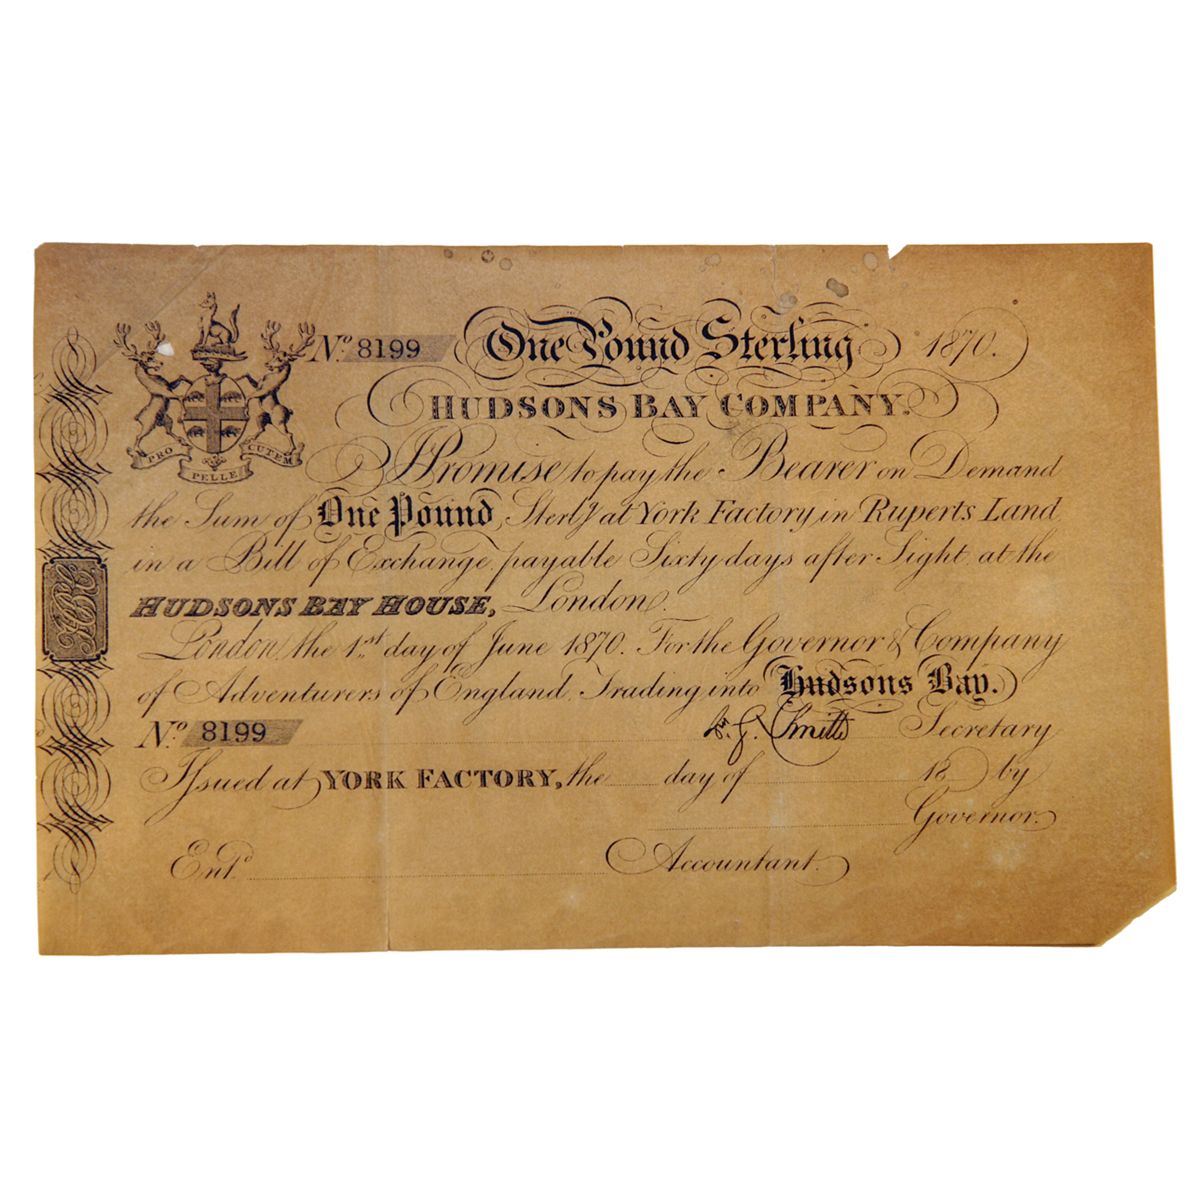 No. 8199 One Pound Sterling 1870.
HUDSONS BAY COMPANY.
PRO PELLE CUTEM
I Promise to pay the Bearer on Demand
the Sum of One Pound Sterlg. at York Factory in Ruperts Land
in a Bill of Exchange payable Sixty days after Sight at the
HUDSONS BAY HOUSE, London.
London, the 1st day of June 1870. For the Governor & Company
of Adventurers of England, Trading into Hudsons Bay.
HBC
No. 8199 W. G. Smith Secretary
Issued at YORK FACTORY, the day of 18 by
Governor.
Entd. Accountant.